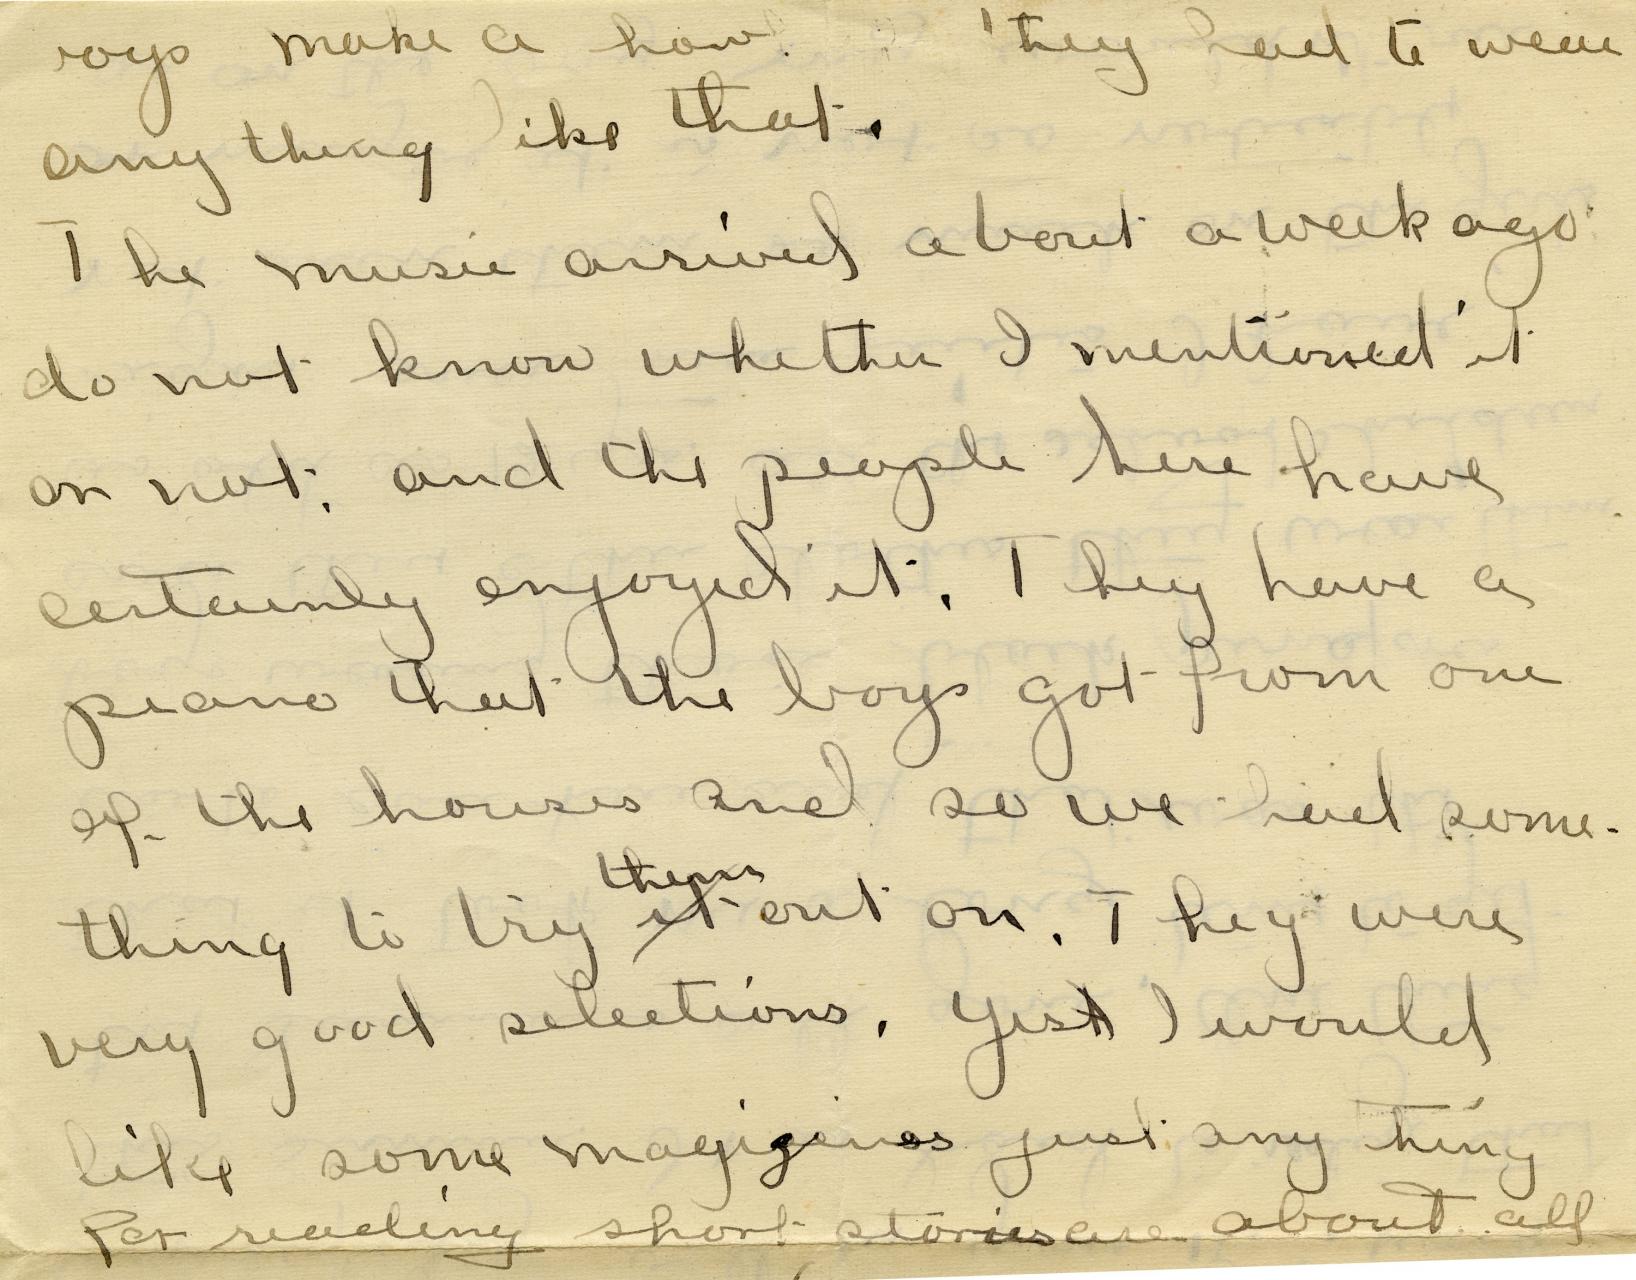 boys make a howl they had to wear
anything like that.
The music arrived about a week ago
do not know whether I mentioned it
or not, and the people here have
certainly enjoyed it. They have a
piano that the boys got from one
of the houses and so we had some-
thing to try them out on. They were
very good selections. Yes I would
like some magizines just any thing
for reading short stories are about all